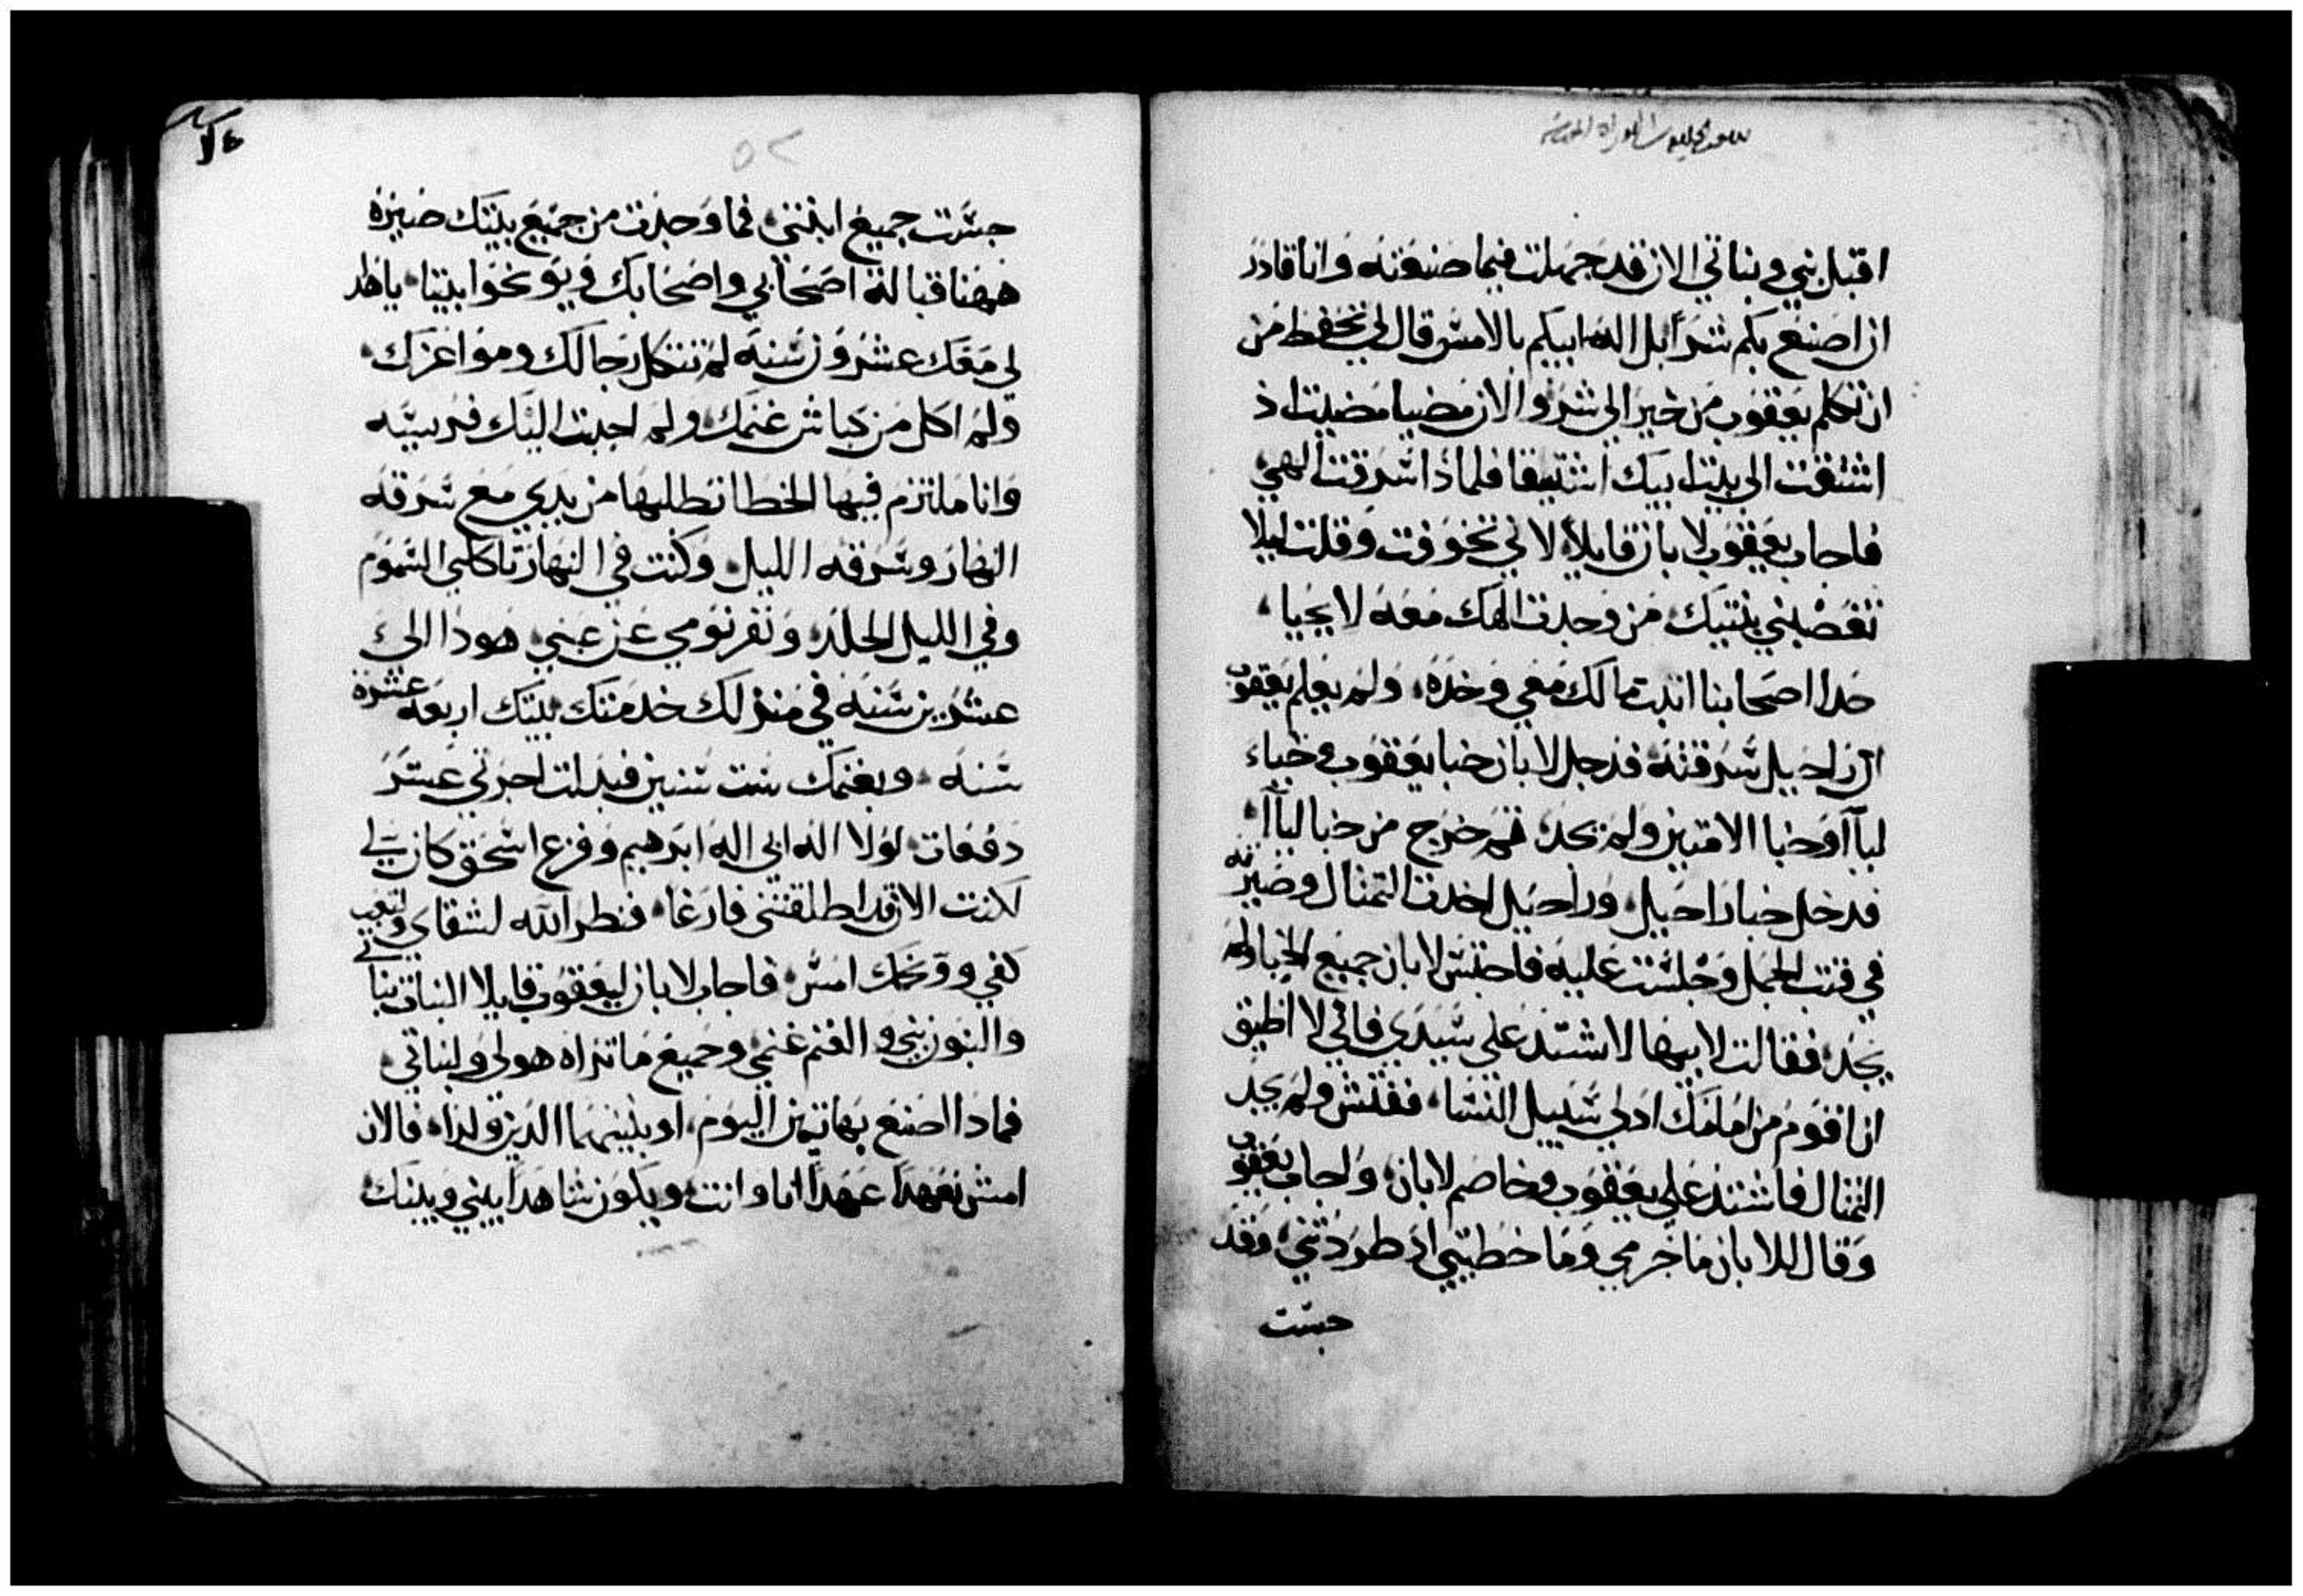 اقبل بني وبناتي الان قد جهلت فيما صنعته وانا قادر
ان اصنع بكم شرا بل اله ابيكم بالامس قال لي تحفظ من
ان تكلم يعقوب من خير الي شر والان مضيا مضيت اذ
اشتقت الى بيت ابيك اشتيقا فلماذا سرقت الهي
فاجاب يعقوب لابان قايلا لاني تخوفت وقلت ليلا
تغصبني بنتيك من وجدت الهك معه لا يحيا
حدا اصحابنا اثبت مالك معي وخذه ولم يعلم يعقوب
ان راحيل سرقته فدخل لابان خبا يعقوب وخباء
ليآ وخبا الامتين ولم يجد ثم خرج من خبا ليآ
فدخل خبا راحيل وراحيل اخدت التمثال وصيرته
في قتب الجمل وجلست عليه فاجتس لابان جميع الخبا ولم
يجد فقالت لابيها لا يشتد علي سيدي فاني لا اطيق
ان اقوم من امامك اذ لي سبيل النسا ففتش ولم يجد
التمثال فاشتد علي يعقوب وخاصم لابان واجاب يعقوب
وقال للابان ما جرمي وما خطيتي اذ طردتني وقد
جسّت
٥٢
جسّست جميع انيتي فما وجدت من جميع بيتك صيره
ههنا قبالة اصحابي واصحابك ويوبخوا بيننا ياهذا
لي معك عشرون سنه لم تتكل رجالك ومواعزك
ولم اكل من كباش غنمك ولم اجبت اليك فريسه
وانا ملتزم فيها الخطا تطلبها من يدي مع سرقه
النهار وسرقه الليل وكنت في النهار تاكلني السموم
وفي الليل الجليد ونفر نومي عن عيني هوذا الي
عشرين سنه في منزلك خدمتك ببنتيك اربعه عشرة
سنه وبغنمك ست سنين فبدلت اجرتي عشر
دفعات لولا اله ابي اله ابرهيم وفزع اسحق كان لي
لكنت الان قد اطلقتني فارغا فنظر الله لشقاي وتعب
كفي ووبخك امس فاجاب لابان ليعقوب قايلا البنات بناتي
والبنون بني والغنم غنمي وجميع ما تراه هو لي ولبناتي
فماذا اصنع بهاتين اليوم او ببنيهما الذين ولداه فالان
امش نعهد عهدا انا وانت ويكون شاهدا بيني وبينك